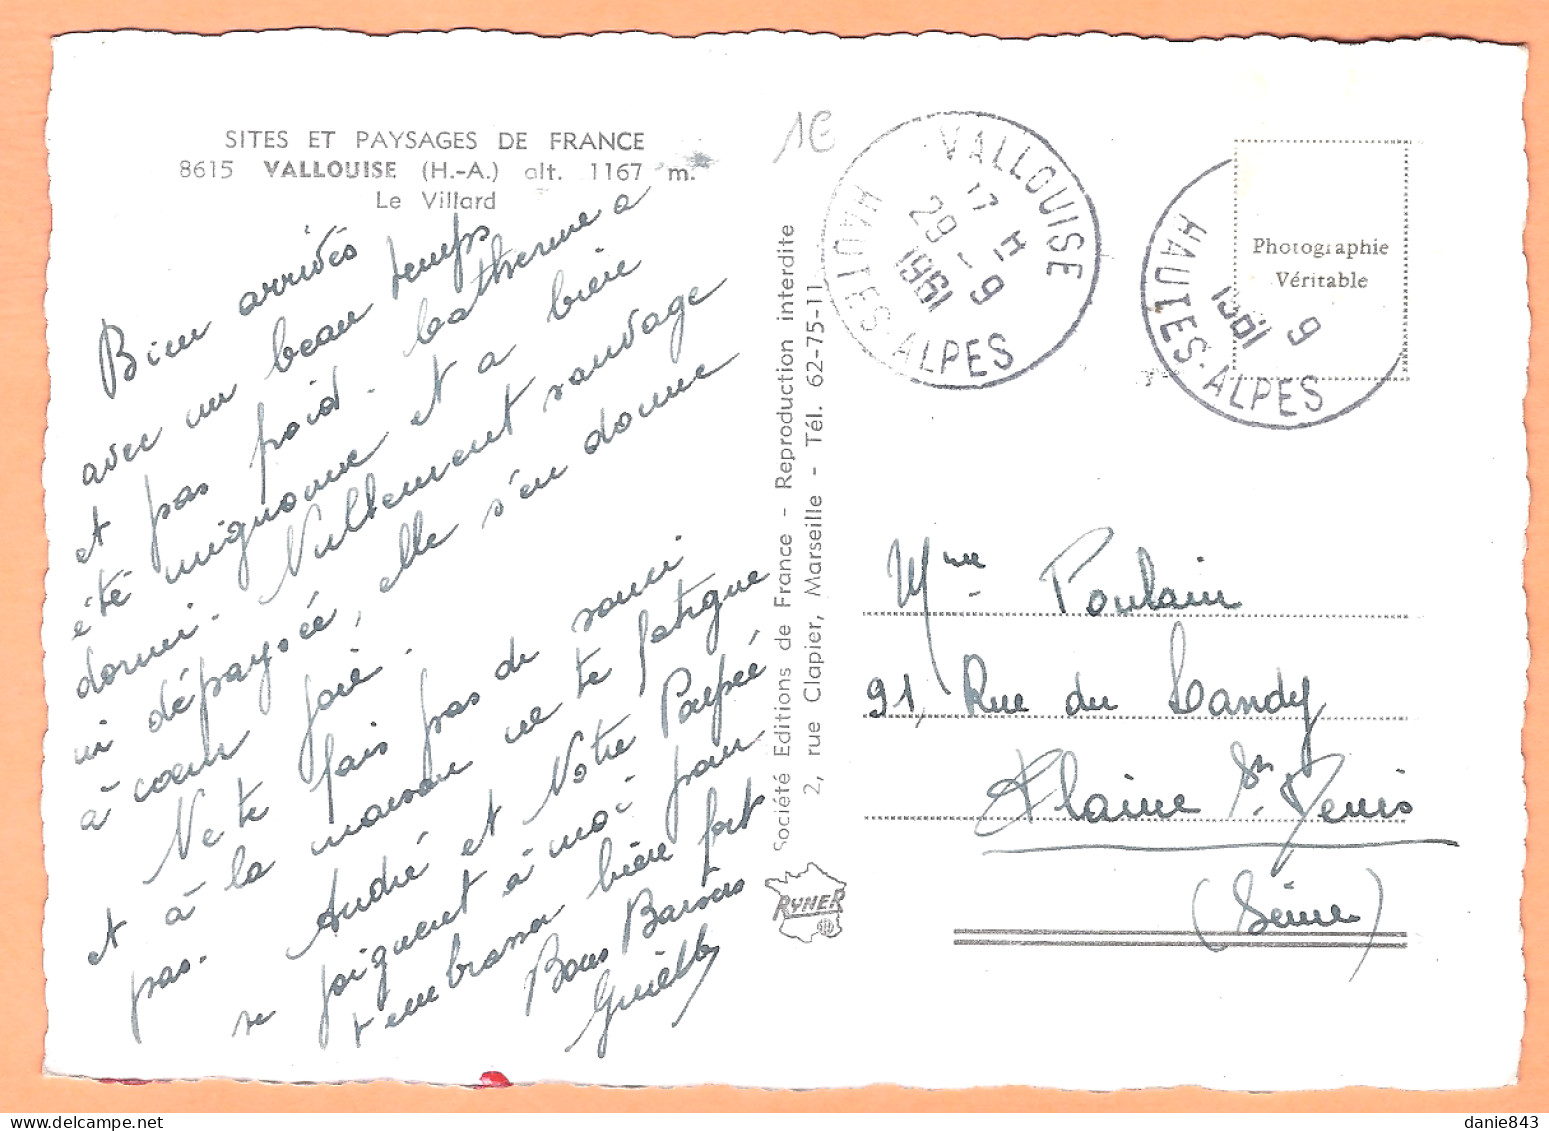 SITES ET PAYSAGES DE FRANCE
8615 VALLOUISE (H.-A.) alt. 1167 m.
Le Villard
Bien arrivés
avec un beau temps
et pas froid. Catherine a
été mignonne et a bien
dormi. Nullement sauvage
ni dépaysée, elle s'en donne
à cœur joie.
Ne te fais pas de souci
et à la maison ne te fatigue
pas. André et Notre Poupée
se joignent à moi pour
t'embrasser bien fort
Bons Baisers
Société Editions de France - Reproduction interdite
2, rue Clapier, Marseille - Tél. 62-75-11
RYNER
1€
VALLOUISE
17 H
29 - 9
1961
HAUTES-ALPES
9
1961
HAUTES-ALPES
Photographie
Véritable
Mme Poulain
91, Rue du Landy
Plaine St Denis
(Seine)
danie843